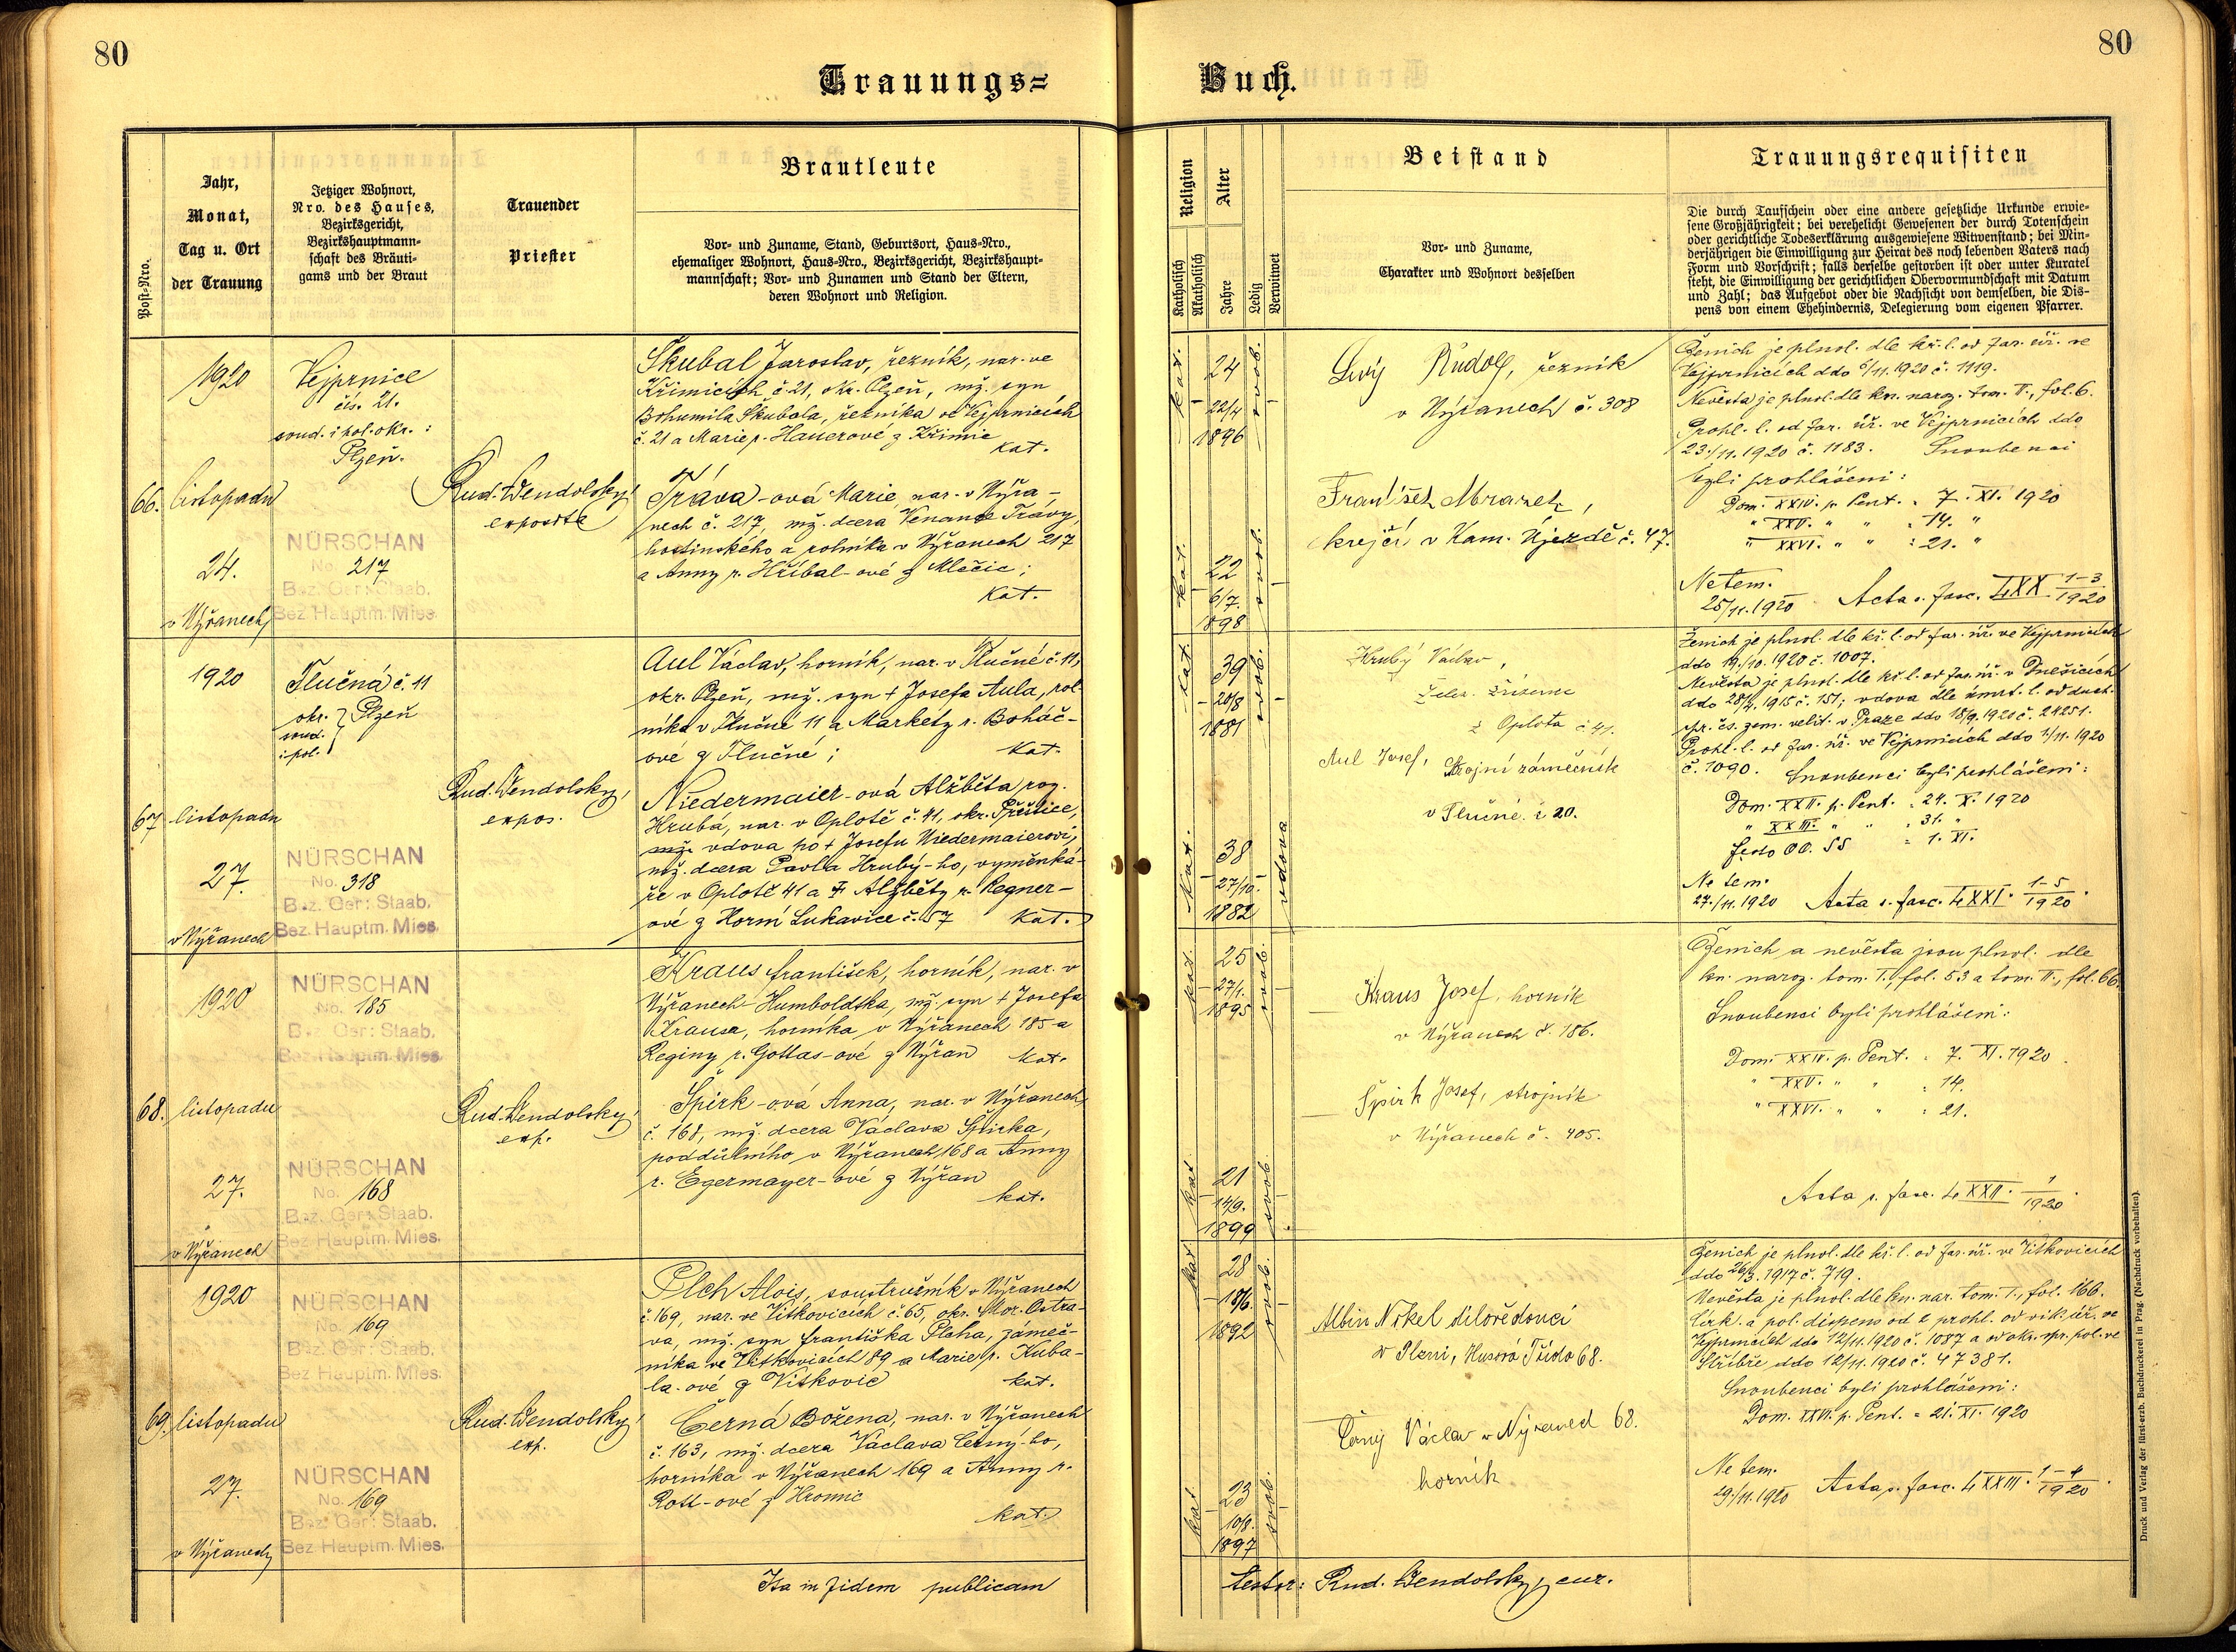 80
80
Trauungs=
Buch.
Post=Nro.
Jahr,
Monat,
Tag u. Ort
der Trauung
Jetziger Wohnort,
Nro. des Hauses,
Bezirksgericht,
Bezirkshauptmann=
schaft des Bräuti=
gams und der Braut
Trauender
Priester
Brautleute
Vor= und Zuname, Stand, Geburtsort, Haus=Nro.,
ehemaliger Wohnort, Haus=Nro., Bezirksgericht, Bezirkshaupt=
mannschaft; Vor= und Zunamen und Stand der Eltern,
deren Wohnort und Religion.
Religion
Katholisch
Akatholisch
Alter
Jahre
Ledig
Verwitwet
Beistand
Vor= und Zuname,
Charakter und Wohnort desselben
Trauungsrequisiten
Die durch Taufschein oder eine andere gesetzliche Urkunde erwie=
sene Großjährigkeit; bei verehelicht Gewesenen der durch Totenschein
oder gerichtliche Todeserklärung ausgewiesene Witwenstand; bei Min=
derjährigen die Einwilligung zur Heirat des noch lebenden Vaters nach
Form und Vorschrift; falls derselbe gestorben ist oder unter Kuratel
steht, die Einwilligung der gerichtlichen Obervormundschaft mit Datum
und Zahl; das Aufgebot oder die Nachsicht von demselben, die Dis=
pens von einem Ehehindernis, Delegierung vom eigenen Pfarrer.
66.
1920
listopadu
24.
v Nýřanech
Vejprnice
čís. 21.
soud. i pol. okr. :
Plzeň.
NÜRSCHAN
No. 217
Bez. Ger: Staab.
Bez Hauptm. Mies.
Rud. Wendolský,
exposita
Škubal Jaroslav, řezník, nar. ve
Křimicích č. 21, okr. Plzeň, mž. syn
Bohumila Škubala, řezníka ve Vejprnicích
č. 21 a Marie r. Hauerové z Křimic
kat.
Tráva-ová Marie, nar. v Nýřa-
nech č. 217, mž. dcera Venance Trávy,
hostinského a rolníka v Nýřanech 217
a Anny r. Hříbal-ové z Mlečic;
kat.
kat.
24
22/4
1896
svob.
kat.
22
6/7.
1898
svob.
Levý Rudolf, řezník
v Nýřanech č. 308
František Mrazek,
krejčí v Kam. Újezdě č. 47.
Ženich je plnol. dle kř. l. od far. úř. ve
Vejprnicích ddo 6/11. 1920 č. 1119.
Nevěsta je plnol. dle kn. naroz. tom. II., fol. 6.
Prohl. l. od far. úř. ve Vejprnicích ddo
23./11. 1920 č. 1183. Snoubenci
byli prohlášeni:
Dom. XXIV. p. Pent. = 7. XI. 1920
" XXV. " " = 14. "
" XXVI. " " = 21. "
Ne tem.
25/11. 1920 Acta s. fasc. LXX. 1-3/1920
67.
1920
listopadu
27.
v Nýřanech
Tlučná č. 11
okr.
soud. } Plzeň
i pol.
NÜRSCHAN
No. 318
Bez. Ger: Staab.
Bez. Hauptm. Mies.
Rud. Wendolský,
expos.
Aul Václav, horník, nar. v Tlučné č. 11,
okr. Plzeň, mž. syn † Josefa Aula, rol-
níka v Tlučné 11 a Markéty r. Boháč-
ové z Tlučné; kat.
Niedermaier-ová Alžběta, roz.
Hrubá, nar. v Oplotě č. 41, okr. Přeštice,
mž. vdova po † Josefu Niedermaierovi,
mž. dcera Pavla Hrubý-ho, výměnká-
ře v Oplotě 41 a † Alžběty r. Regner-
ové z Horní Lukavice č. 57 kat.
kat.
39
20/8
1881
svob.
kat.
38
27/10.
1882
vdova
Hrubý Václav,
želez. zřízenec
z Oplota č. 41.
Aul Josef, strojní zámečník
v Tlučné č 20.
Ženich je plnol. dle kř. l. od far. úř. ve Vejprnicích
ddo 19./10. 1920 č. 1007.
Nevěsta je plnol. dle kř. l. od far. úř. v Dnešicích
ddo 28/4. 1915 č. 151; vdova dle úmrt. l. od duch.
spr. čs. zem. velit. v Praze ddo 18/9. 1920 č. 24251.
Prohl. l. od far. úř. ve Vejprnicích ddo 1/11. 1920
č. 1090. Snoubenci byli prohlášeni:
Dom. XXII. p. Pent. = 24. X. 1920
" XXIII. " " = 31. "
festo OO. SS = 1. XI.
Ne tem.
27./11. 1920 Acta s. fasc. LXXI. 1-5/1920.
68.
1920
listopadu
27.
v Nýřanech
NÜRSCHAN
No. 185
Bez Ger: Staab.
Bez. Hauptm. Mies.
NÜRSCHAN
No. 168
Bez. Ger: Staab.
Bez Hauptm. Mies.
Rud. Wendolský,
exp.
Kraus František, horník, nar. v
Nýřanech-Humboldtka, mž. syn † Josefa
Krausa, horníka v Nýřanech 185 a
Reginy r. Gottas-ové z Nýřan kat.
Špirk-ová Anna, nar. v Nýřanech
č. 168, mž. dcera Václava Špirka,
poddůlního v Nýřanech 168 a Anny
r. Egermayer-ové z Nýřan
kat.
kat.
25
27/1.
1895
svob.
kat.
21
14/9.
1899
svob.
Kraus Josef, horník
v Nýřanech č. 186.
Špirk Josef, strojník
v Nýřanech č. 405.
Ženich a nevěsta jsou plnol. dle
kn. naroz. tom. I., fol. 53 a tom. II., fol. 66.
Snoubenci byli prohlášeni:
Dom. XXIV. p. Pent. = 7. XI. 1920.
" XXV. " " = 14.
" XXVI. " " = 21.
Acta s. fasc. LXXII. 1/1920.
69.
1920
listopadu
27.
v Nýřanech
NÜRSCHAN
No. 169
Bez. Ger: Staab.
Bez Hauptm. Mies.
NÜRSCHAN
No. 169
Bez. Ger: Staab.
Bez Hauptm. Mies.
Rud. Wendolský,
exp.
Plch Alois, soustružník v Nýřanech
č. 169, nar. ve Vítkovicích č. 65, okr. Mor. Ostra-
va, mž. syn Františka Plcha, zámeč-
níka ve Vítkovicích 89 a Marie r. Kuba-
la-ové z Vítkovic kat.
Černá Božena, nar. v Nýřanech
č. 163, mž. dcera Václava Černý-ho,
horníka v Nýřanech 169 a Anny r.
Rott-ové z Hromic
kat.
kat
28
18/6.
1892
svob.
kat
23
10/8.
1897
svob.
Albin Nikel dílovědoucí
v Plzni, Husova Třída 68.
Černý Václav v Nýřanech 68.
horník
Ženich je plnol. dle kř. l. od far. úř. ve Vítkovicích
ddo 26/3. 1917 č. 719.
Nevěsta je plnol. dle kn. nar. tom. I., fol. 166.
Círk. a pol. dispens od 2 prohl. od vik. úř. ve
Vejprnicích ddo 12/11. 1920 č. 1087 a od okr. spr. pol. ve
Stříbře ddo 12/11. 1920 č. 47381.
Snoubenci byli prohlášeni:
Dom. XXVI. p. Pent. = 21. XI. 1920
Ne tem.
29./11. 1920 Acta s. fasc. LXXIII. 1-4/1920.
Ita in fidem publicam
testor: Rud. Wendolský, cur.
Druck und Verlag der fürst-erzb. Buchdruckerei in Prag. (Nachdruck vorbehalten).